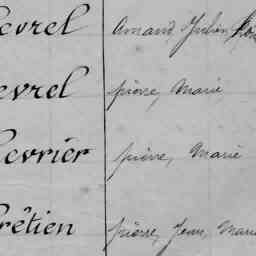 evrel Amand, Julien,
evrel pierre, Marie
evrier pierre, Marie
rêtien pierre, Jean, Marie